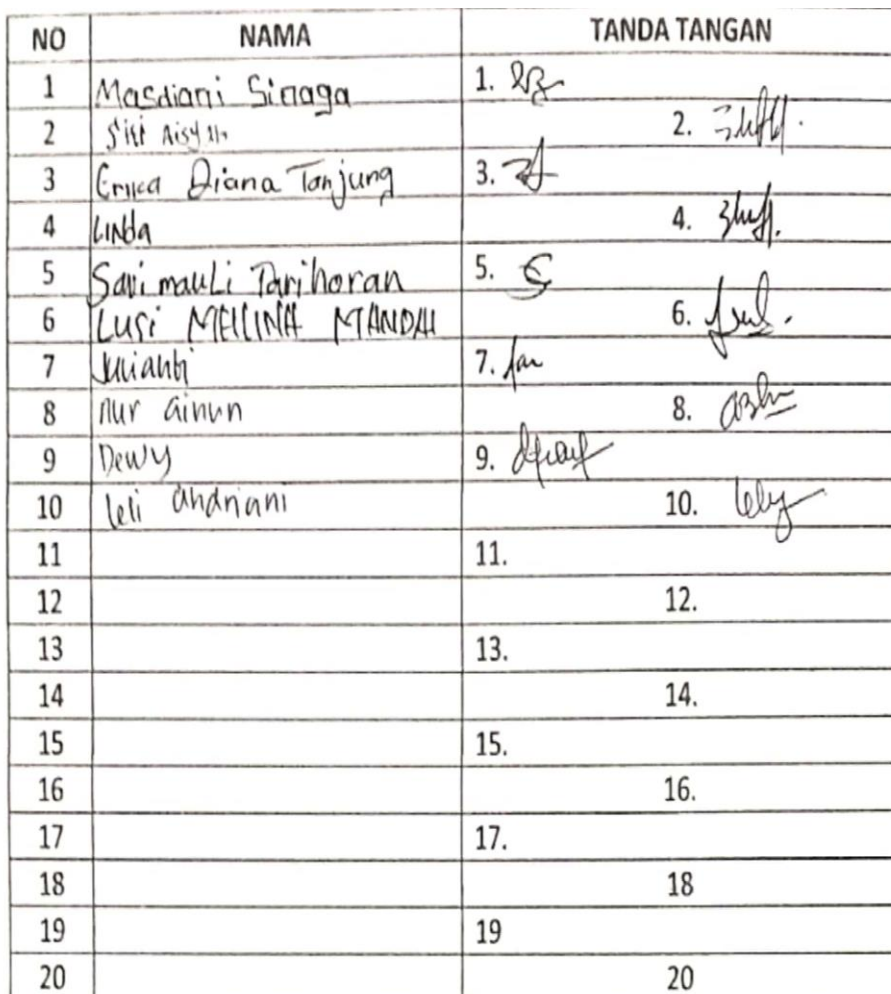 NO NAMA TANDA TANGAN
1 Masdiani Sinaga 1.
2 Siti Aisyah 2.
3 Erika Diana Tanjung 3.
4 LINda 4.
5 Sari mauli Parihoran 5.
6 LUSI MEILINA MANDAI 6.
7 Julianti 7.
8 nur ainun 8.
9 Dewy 9.
10 leli andriani 10.
11 11.
12 12.
13 13.
14 14.
15 15.
16 16.
17 17.
18 18
19 19
20 20